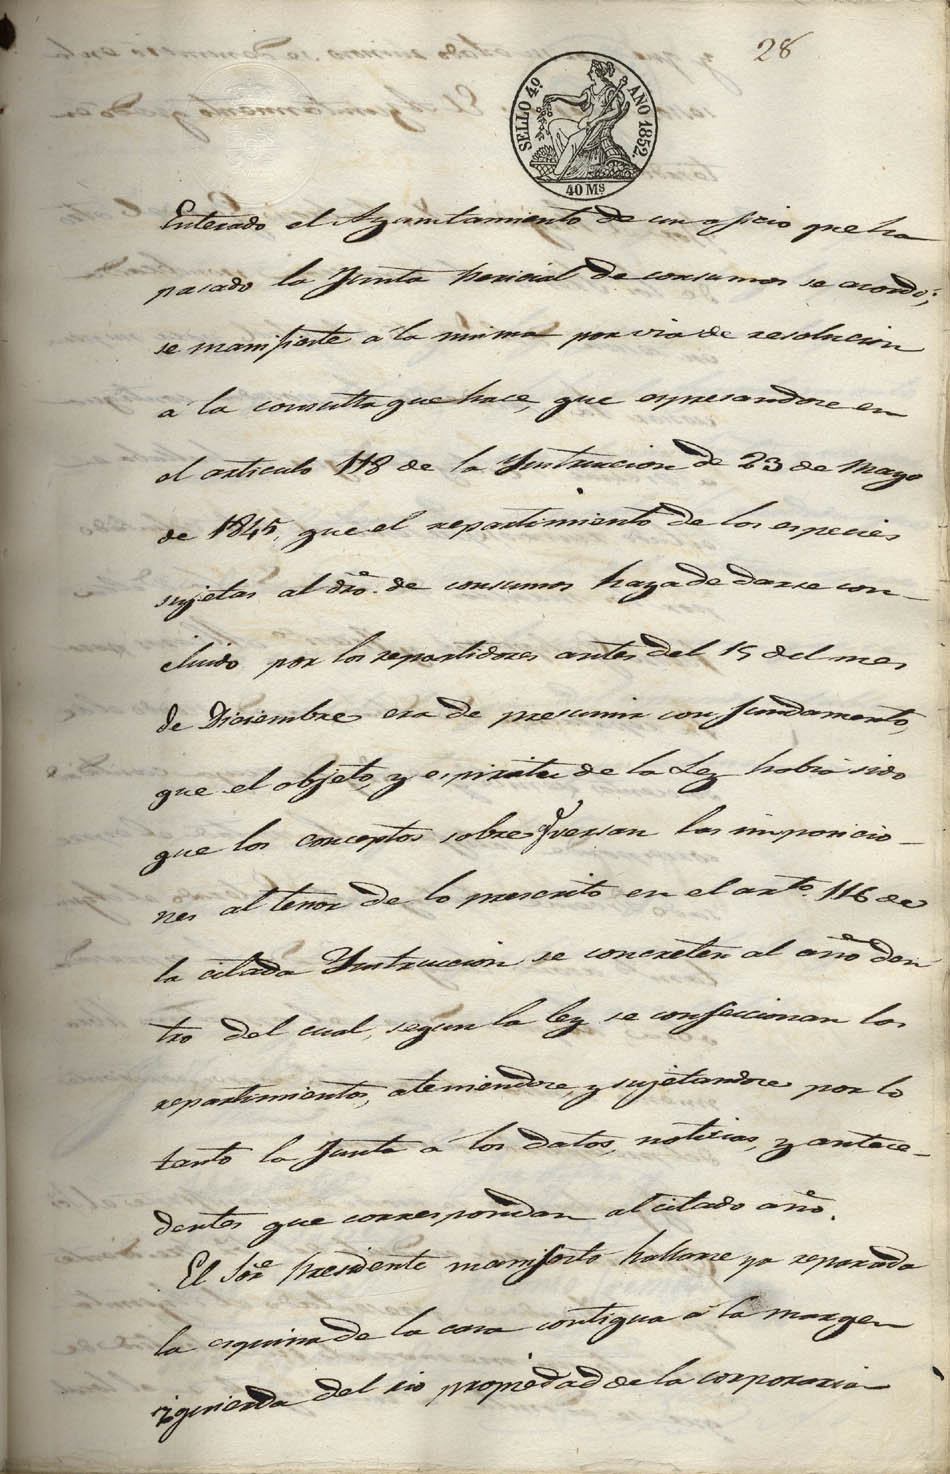 28
SELLO 4º AÑO 1852.
40 Ms
Enterado el Ayuntamiento de un oficio que ha
pasado la Junta pericial de consumos se acordó;
se manifieste á la misma por via de resolucion
á la consulta que hace, que espresandose en
el articulo 118 de la Ynstruccion de 23 de Mayo
de 1845, que el repartimiento de los especies
sujetas al dro. de consumos haya de darse con-
cluido por los repartidores antes del 15 del mes
de Diciembre era de presumir con fundamento,
que el objeto, y espiritu de la Ley habia sido
que los conceptos sobre q versan las imposicio-
nes al tenor de lo prescrito en el arto. 116 de
la citada Ynstruccion se concreten al año den
tro del cual, segun la ley se confeccionan los
repartimientos, ateniendose, y sujetandose por lo
tanto la Junta á los datos, noticias, y antece-
dentes que correspondan al citado año.
El Sor. Presidente manifestó hallarse ya reparada
la esquina de la casa contigua á la margen
izquierda del rio propiedad de la corporacion